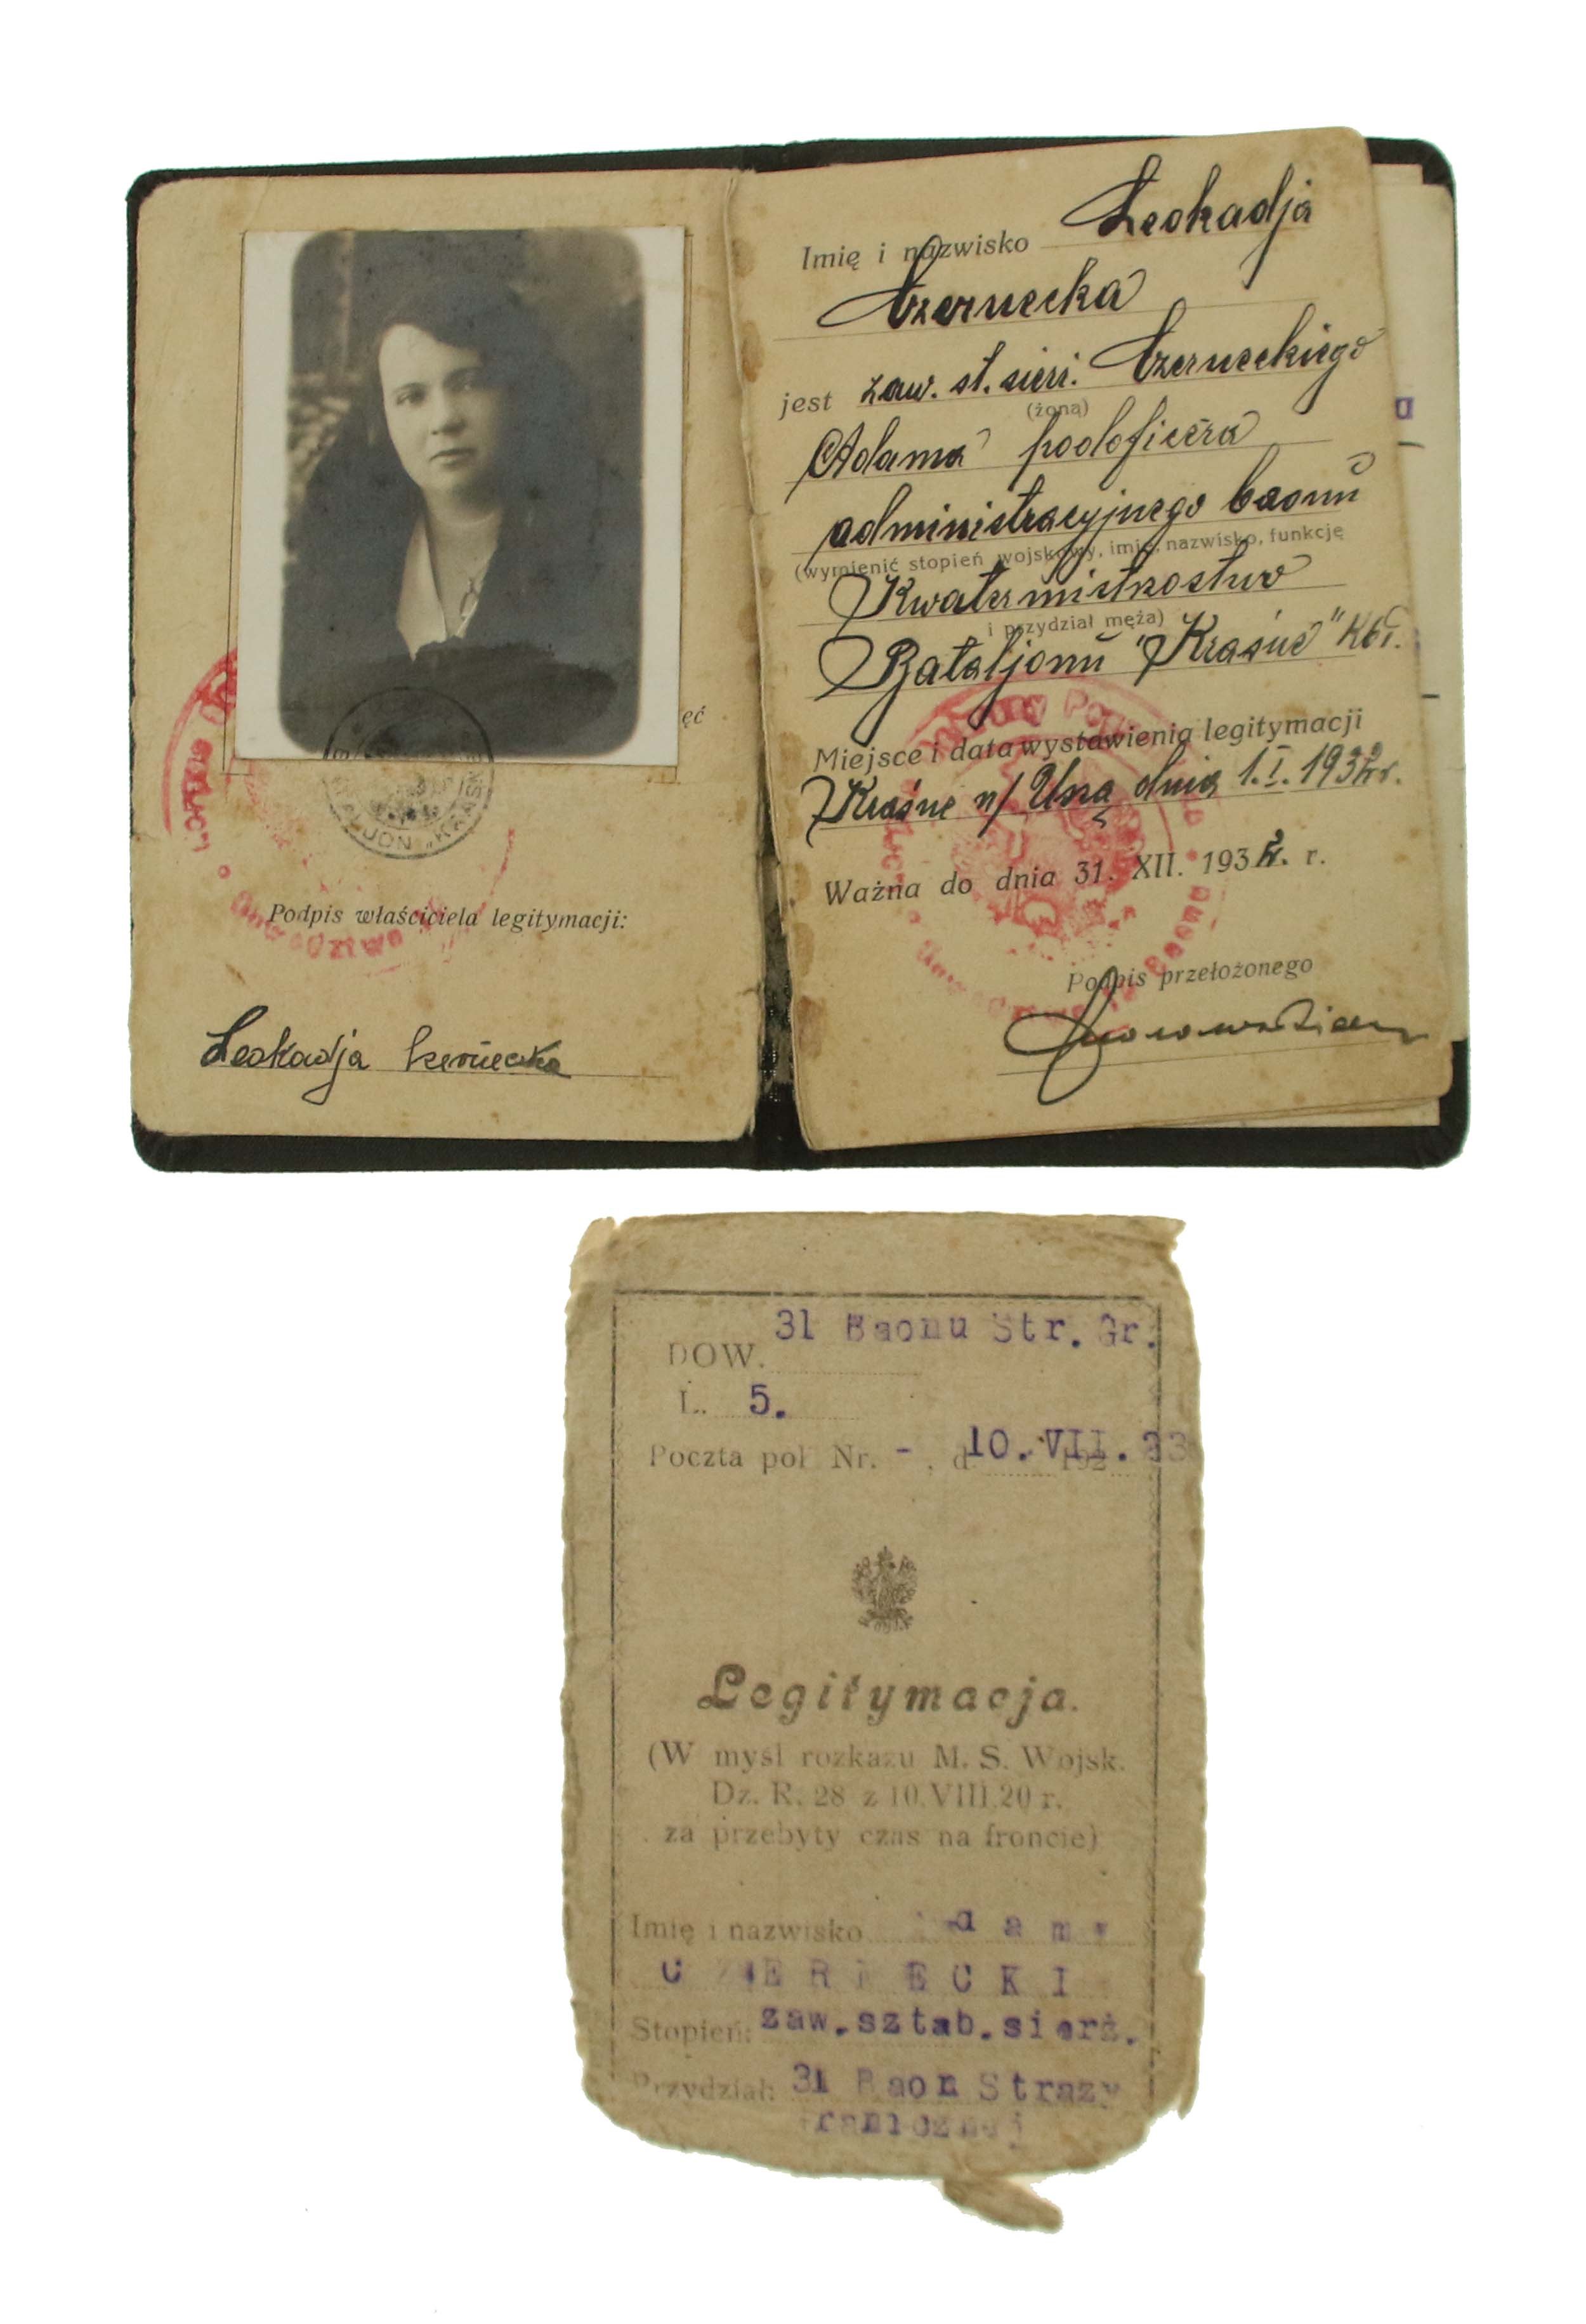 ęć
BATALJON „KRASNE
Podpis właściciela legitymacji:
Leokadja Czernecka
Imię i nazwisko Leokadja
Czernecka
jest zaw. st. sierż. Czerneckiego
(żoną)
Adama podoficera
administracyjnego baonu
(wymienić stopień wojskowy, imię, nazwisko, funkcję
Kwatermistrzostwo
i przydział męża)
Bataljonu "Kraśne" KOP.
Miejsce i data wystawienia legitymacji
Kraśne n/ Uszą dnia 1.I.1932 r.
Ważna do dnia 31. XII. 1932. r.
Podpis przełożonego
DOW. 31 Baonu Str. Gr.
L. 5.
Poczta pol Nr. - , d 10.VII.23
Legitymacja.
(W myśl rozkazu M. S. Wojsk.
Dz. R. 28 z 10.VIII.20 r.
za przebyty czas na froncie)
Imię i nazwisko Adam
CZERNECKI
Stopień: zaw.sztab.sierż.
Przydział: 31 Baon Straży
Granicznej